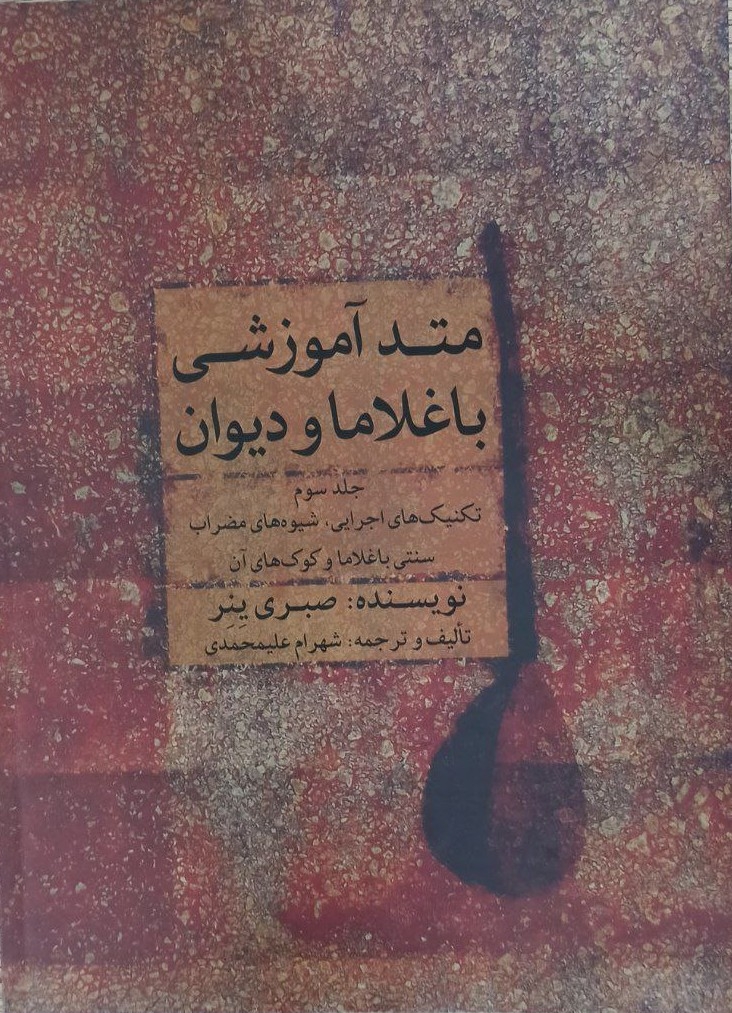 متد آموزشی
باغلاما و دیوان
جلد سوم
تکنیک‌های اجرایی، شیوه‌های مضراب
سنتی باغلاما و کوک‌های آن
نویسنده: صبری یِنِر
تألیف و ترجمه: شهرام علیمحمدی